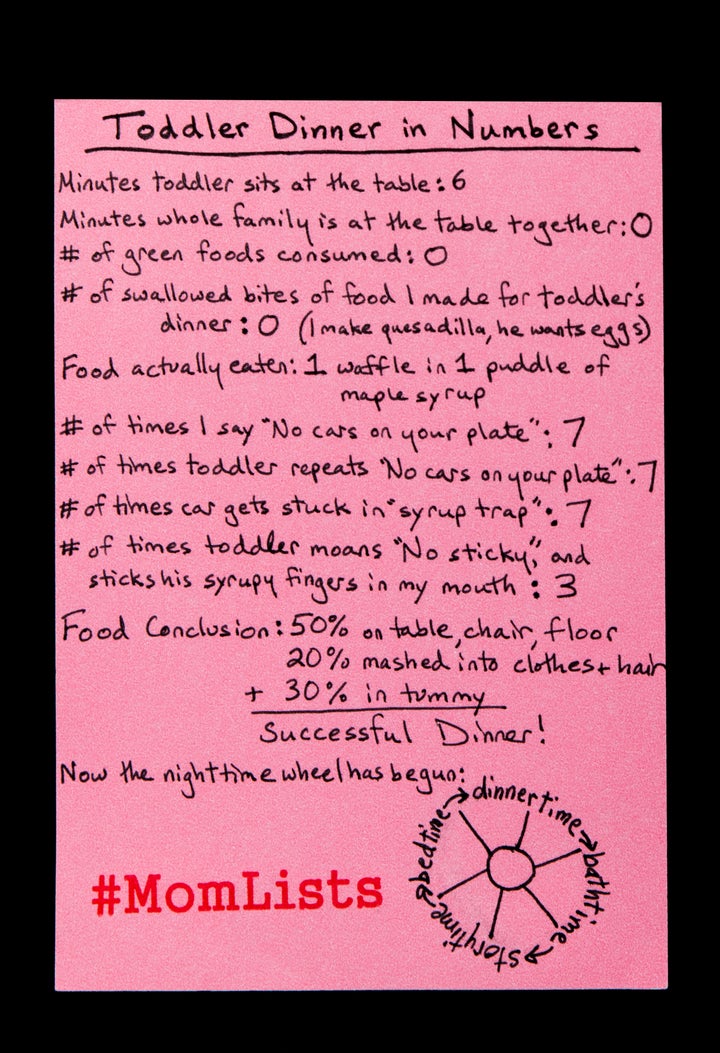 Toddler Dinner in Numbers
Minutes toddler sits at the table: 6
Minutes whole family is at the table together: 0
# of green foods consumed: 0
# of swallowed bites of food I made for toddler's
dinner: 0 (I make quesadilla, he wants eggs)
Food actually eaten: 1 waffle in 1 puddle of
maple syrup
# of times I say "No cars on your plate": 7
# of times toddler repeats "No cars on your plate": 7
# of times car gets stuck in "syrup trap": 7
# of times toddler moans "No sticky", and
sticks his syrupy fingers in my mouth: 3
Food Conclusion: 50% on table, chair, floor
20% mashed into clothes + hair
+ 30% in tummy
Successful Dinner!
Now the nighttime wheel has begun:
dinnertime →
bathtime →
storytime →
bedtime →
#MomLists